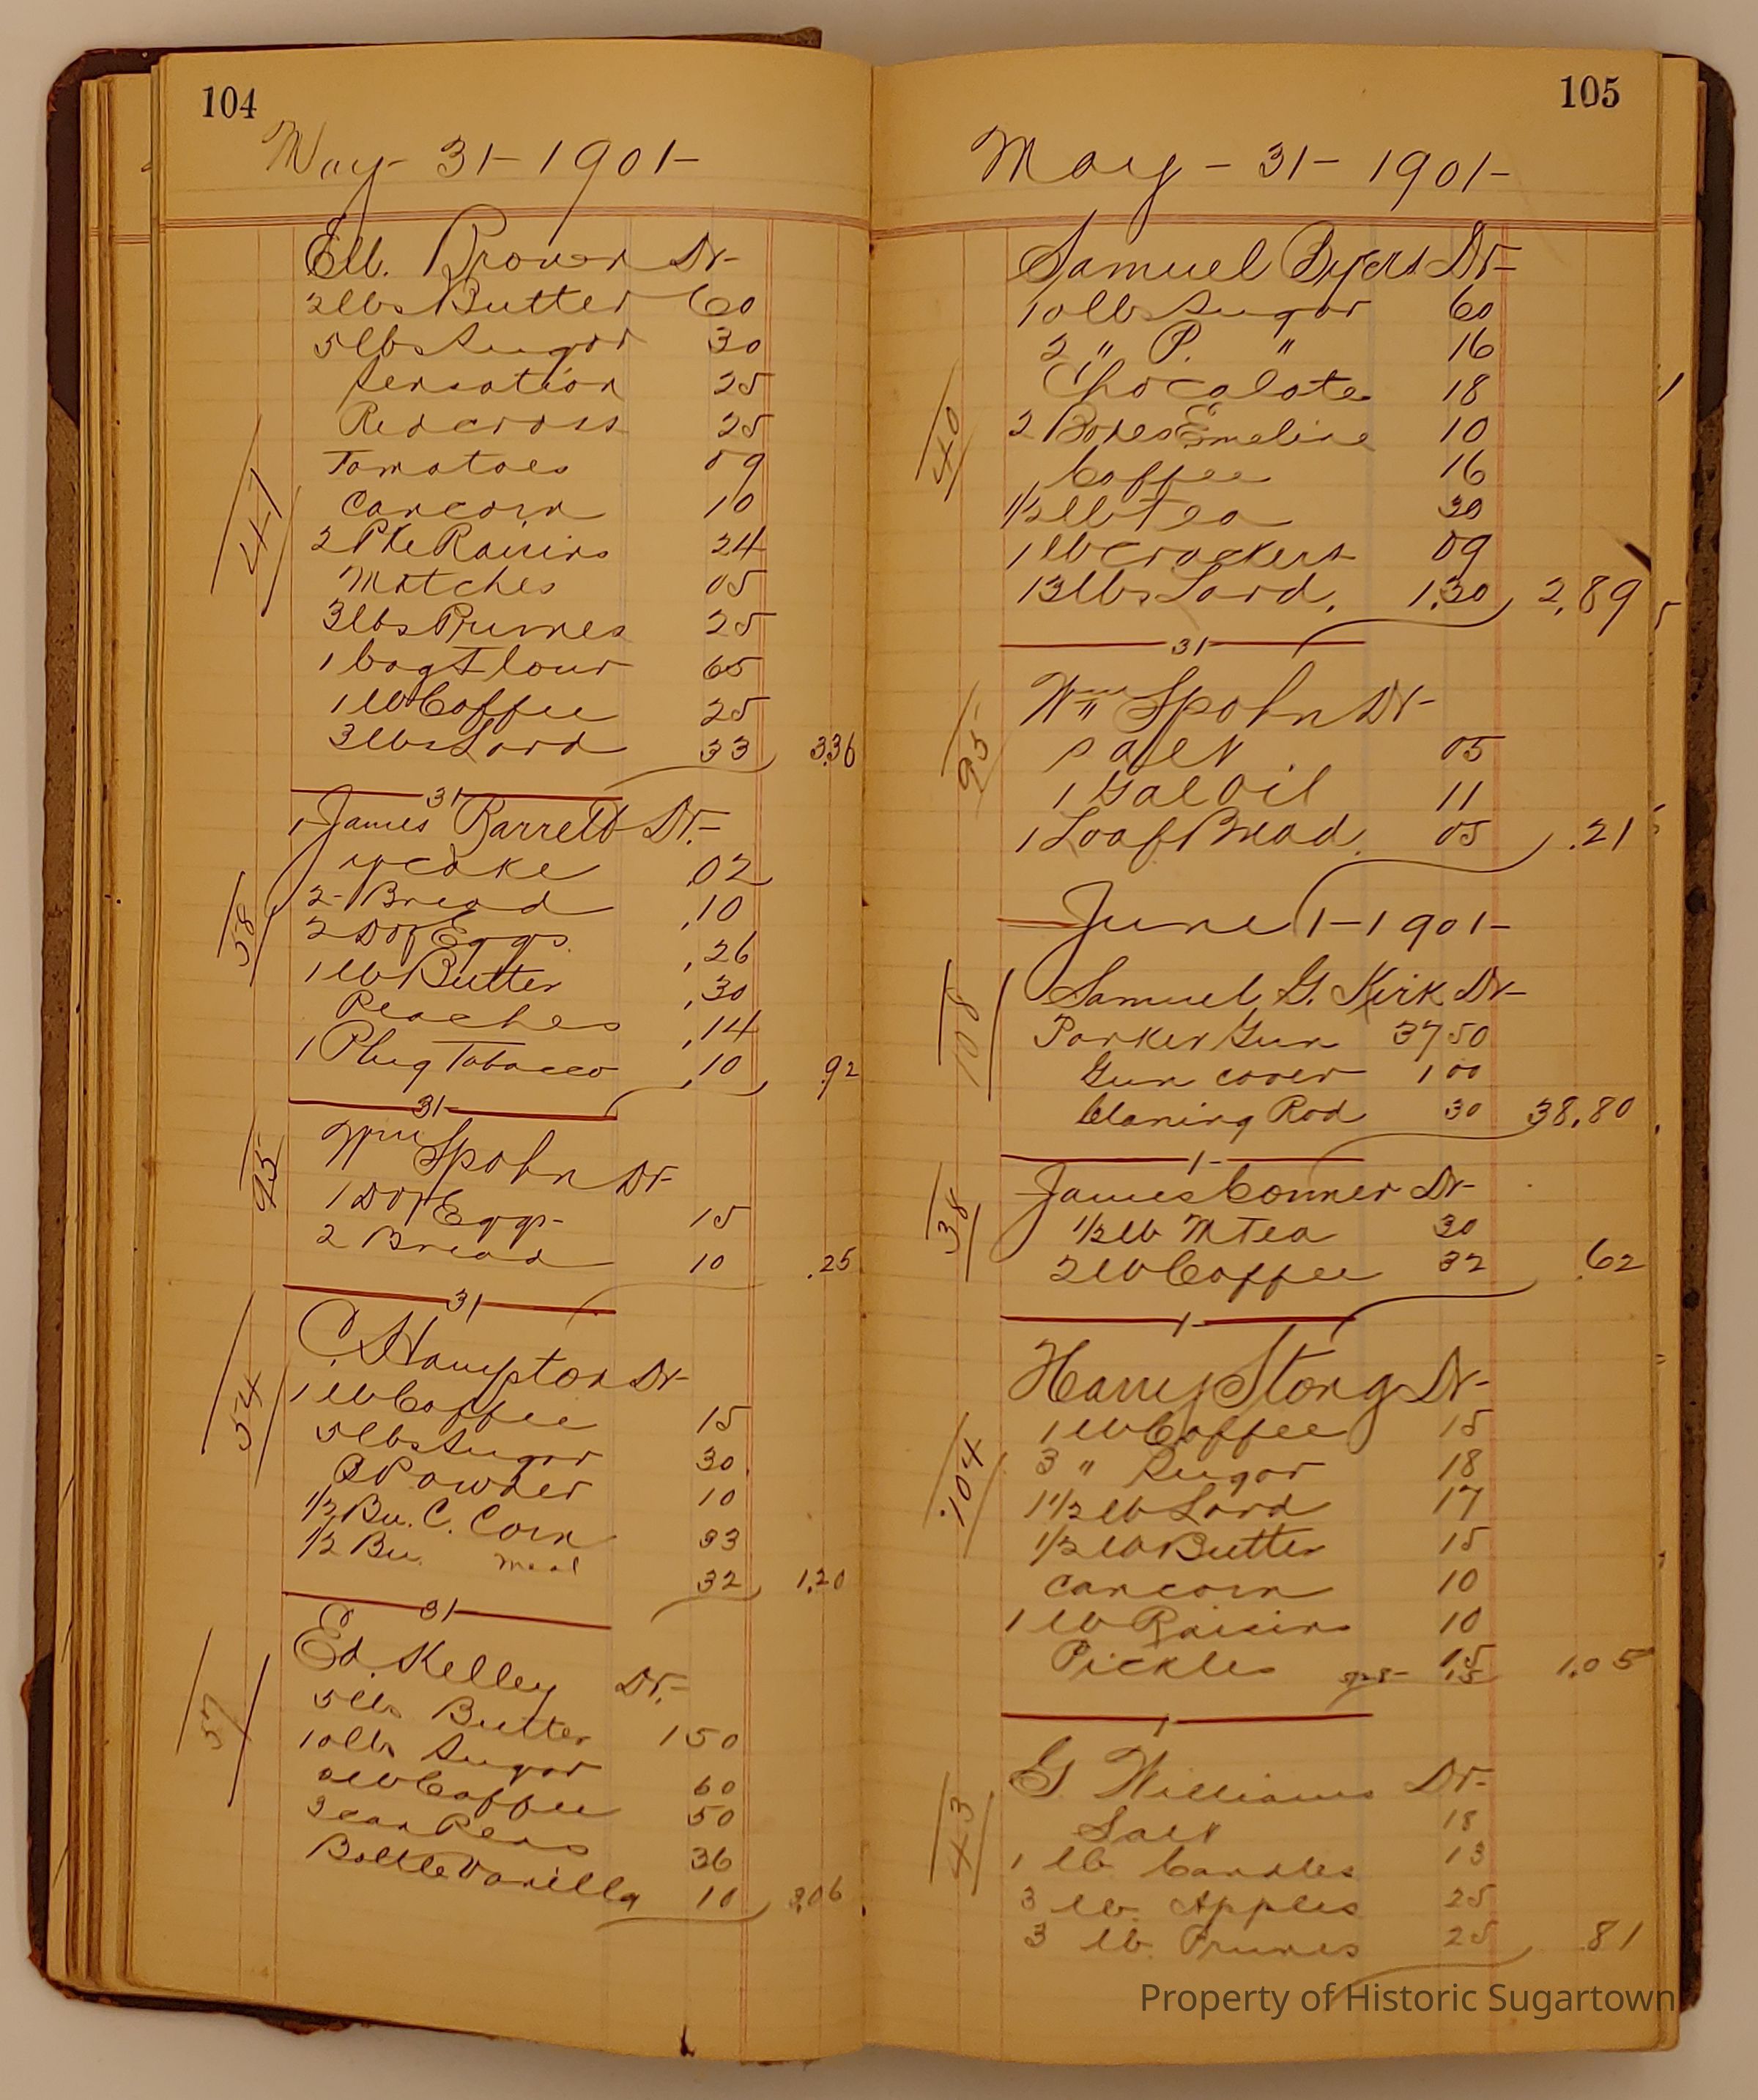 104
May - 31 - 1901 -
Ell. Brower Dr -
2 lbs Butter 60
5 lbs Sugar 30
Sensation 25
Redcross 25
Tomatoes 09
Can corn 10
2 Pk Raisins 24
Matches 05
3 lbs Prunes 25
1 bag Flour 65
1 lb Coffee 25
3 lbs Lard 33 3.36
47
31
James Barrett Dr. -
Y cake .02
2 - Bread .10
2 Doz Eggs .26
1 lb Butter .30
Peaches .14
1 Plug Tobacco .10 .92
58
31 -
Wm Spohn Dr -
1 Doz Eggs - 15
2 Bread 10 .25
95
31
C. Hampton Dr -
1 lb Coffee 15
5 lbs Sugar 30
B Powder 10
1/2 Bu. C. Corn 33
1/2 Bu. meal 32 1.20
54
31
Ed. Kelley Dr. -
5 lbs Butter 150
10 lbs Sugar 60
lb Coffee 50
3 can Peas 36
Bottle Vanilla 10 3.06
57
105
May - 31 - 1901 -
Samuel Byers Dr -
10 lb Sugar 60
2 " P. " 16
Chocolate 18
2 Boxes Emeline 10
Coffee 16
1/2 lb Tea 30
1 lb Crackers 09
13 lbs Lard. 1.30 2.89
40
31
Wm Spohn Dr -
Salt 05
1 Gal Oil 11
1 Loaf Bread. 05 .21
95
June 1 - 1901 -
Samuel G. Kirk Dr -
Parker Gun 37 50
Gun cover 1 00
Claning Rod 30 38.80
108
1 -
James Conner Dr -
1/2 lb M Tea 30
2 lb Coffee 32 .62
38
1 -
Harry Stong Dr -
1 lb Coffee 15
3 " Sugar 18
1 1/2 lb Lard 17
1/2 lb Butter 15
Can corn 10
1 lb Raisins 10
Pickles 15 1.05
104
1
G. Williams Dr -
Salt 18
1 lb. Candles 13
3 lb. Apples 25
3 lb. Prunes 25 .81
43
Property of Historic Sugartown